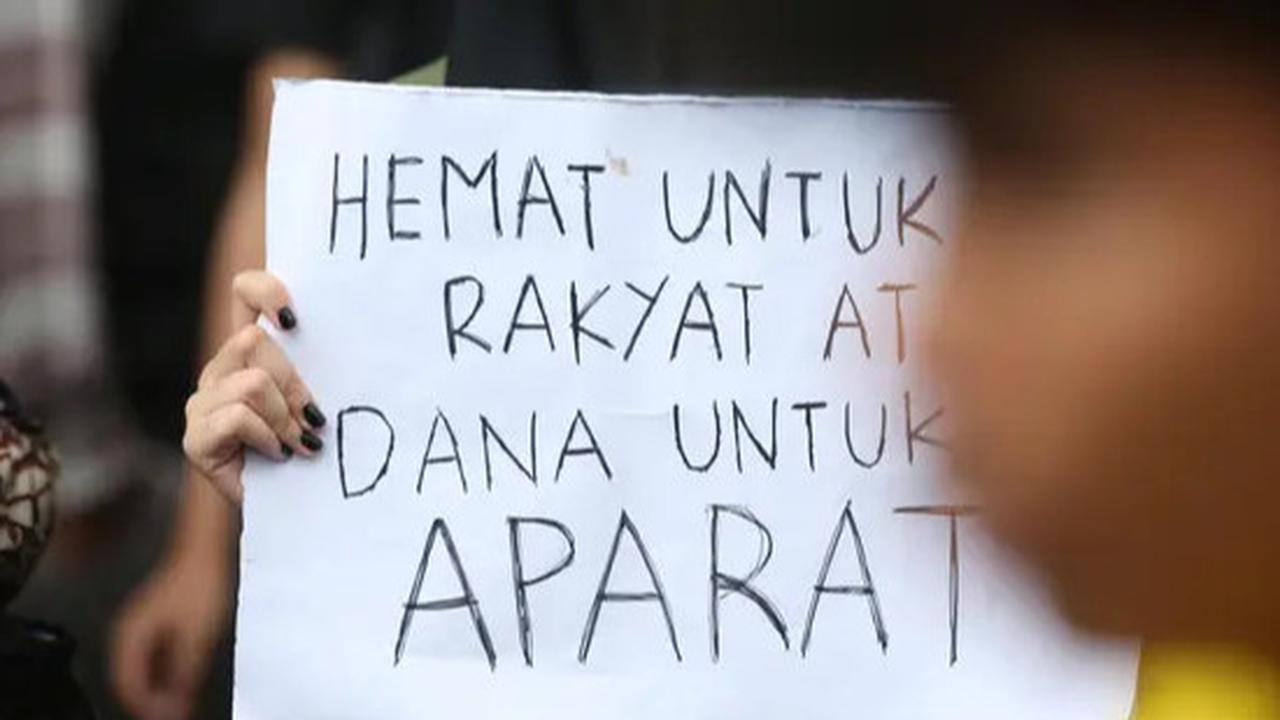 HEMAT UNTUK
RAKYAT
DANA UNTUK
APARAT